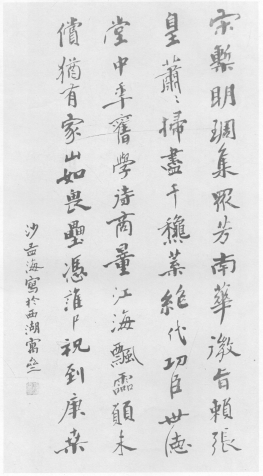 宋槧明琱集眾芳南華澂旨賴張
皇蕭〻掃盡千龝葉絕代功臣世德
堂中年舊學待商量江海飄零願未
償猶有家山如畏壘憑誰尸祝到庚桑
沙孟海寫於西湖寓